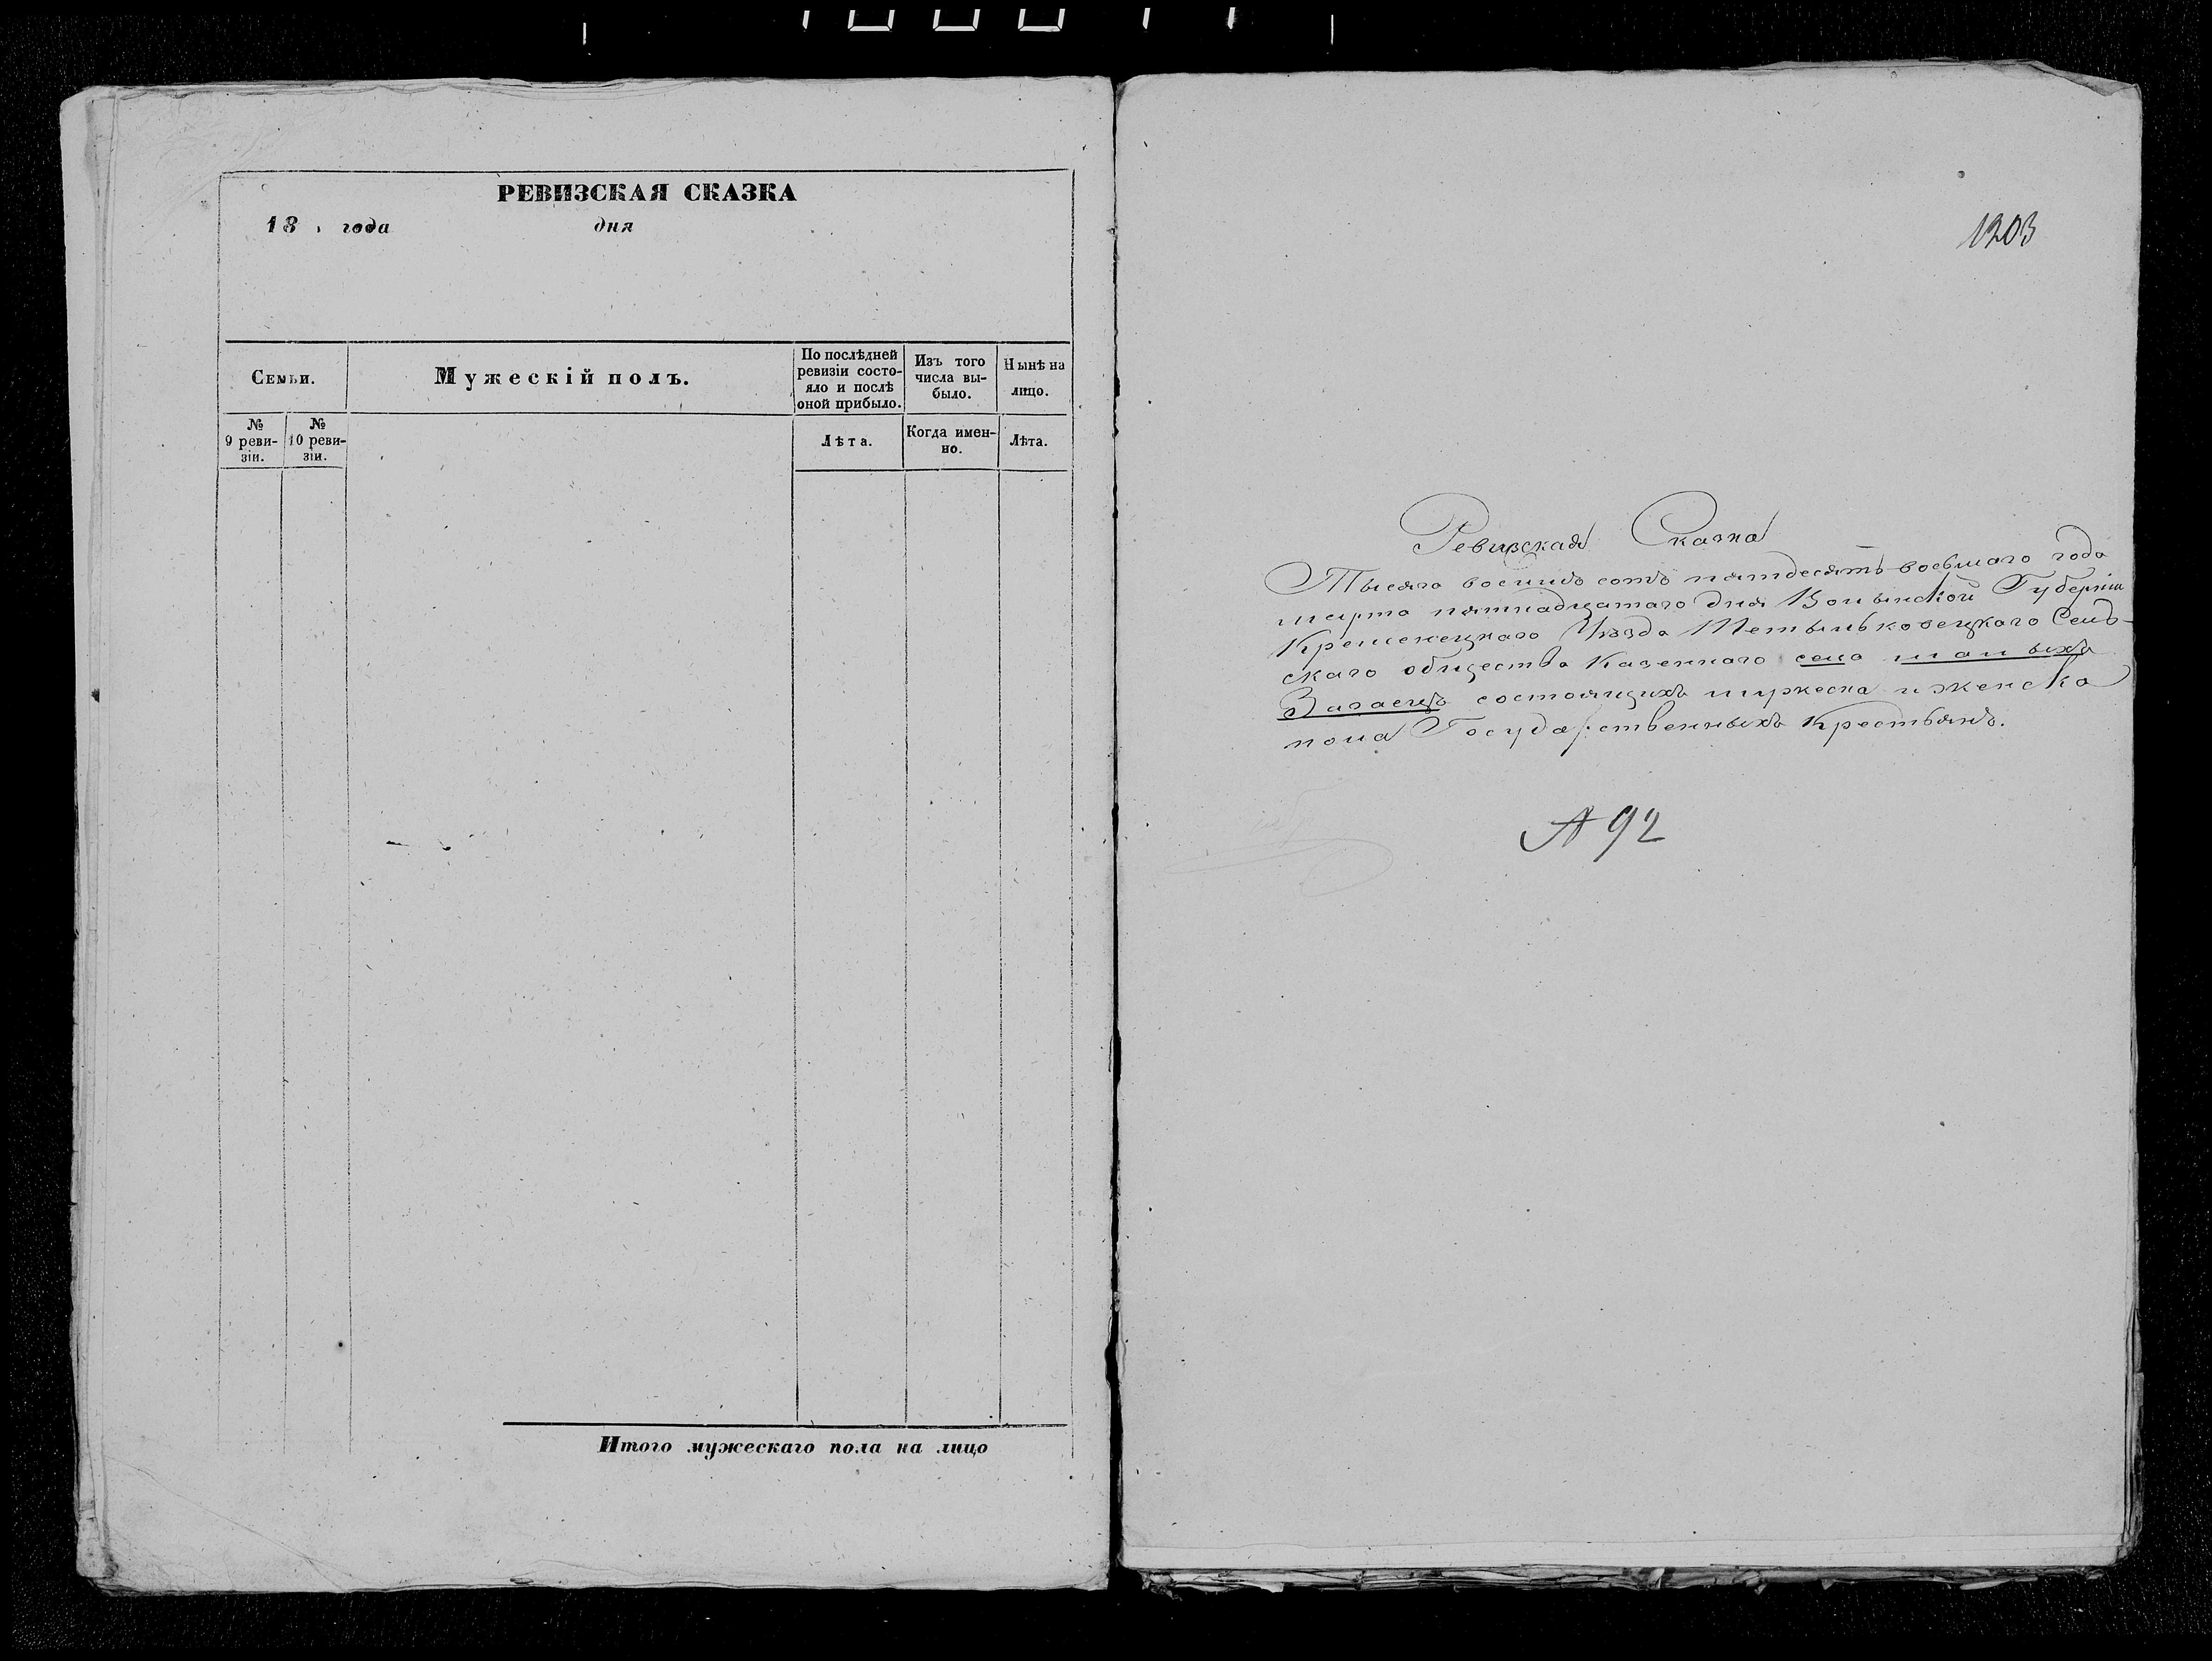 РЕВИЗСКАЯ СКАЗКА
18 года дня
Семьи.
Мужескій полъ.
По послѣдней
ревизіи состо-
яло и послѣ
оной прибыло.
Изъ того
числа вы-
было.
Нынѣ на
лицо.
№
9 реви-
зіи.
№
10 реви-
зіи.
Лѣта.
Когда имен-
но.
Лѣта.
Итого мужескаго пола на лицо
1203
Ревизская Сказка
Тысяча восемь сотъ пятдесятъ восьмаго года
марта пятнадцатаго дня Волынской Губерніи
Кременецкаго Уѣзда Сель-
скаго общества Казеннаго села малыхъ
Загаецъ состоящихъ мужеска и женска
пола Государственныхъ Крестьянъ.
92